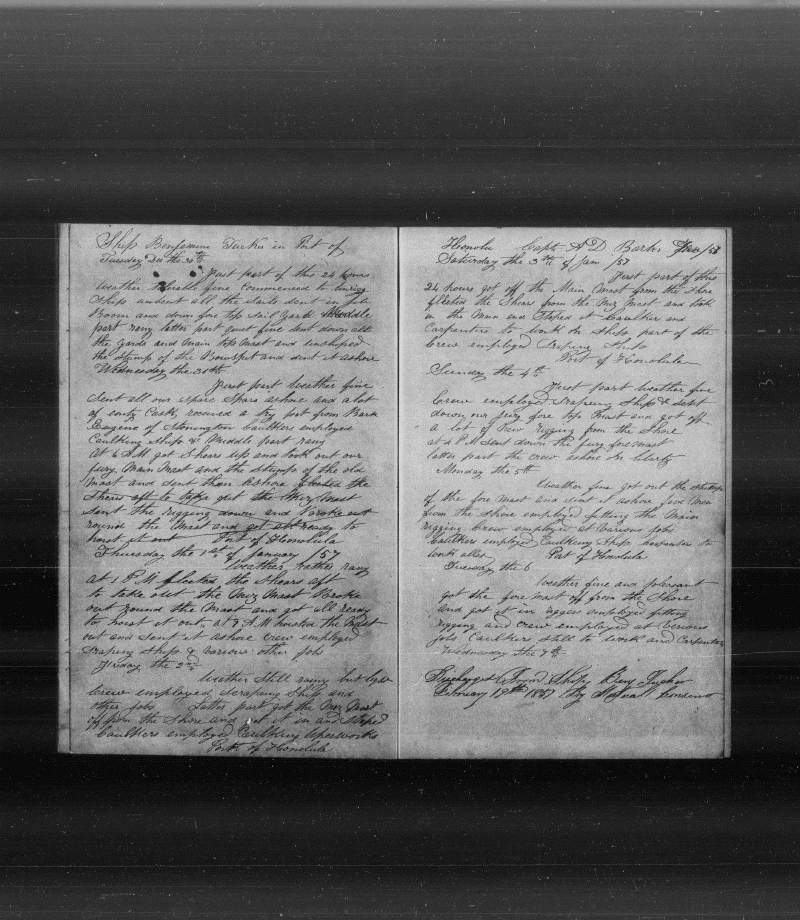 Ship Benjemine Tucker in Port of
Tuesday Dec the 30th
First part of this 24 hours
weather fine commenced to
Ships unbent all the sails sent in jib
Boom and down fore top sail yard Middle
part rany latter part quit fine sent down all
the yards and main top mast and unshiped
the stump of the Bowsprit and sent it ashore
Wednesday the 31th
First part weather fine
sent all our spare spars ashore and a lot
of emty Cask, received a try pot from Bark
Eugene of Stonington Caulkers employed
Caulking ship & Middle part rany
At 6 AM got Shears up and took out our
jury Main Mast and the stump of the old
mast and sent them Ashore floated the
Shears aft to take out the Miz Mast
sent the rigging down and Broke out
round the Mast and got all ready to
hoist it out Port of Honolula
Thursday the 1st of January /57
Weather rather rany
At 1 PM floated the Shears aft
to take out the Miz Mast Broke
out round the Mast and got all ready
to hoist it out, at 7 AM hoisted the Mast
out and sent it ashore crew employed
scraping ship & various other jobs
Friday the 2nd
Weather still rainy but light
crew employed Scraping Ship and
other jobs Latter part got the Miz Mast
off from the Shore and put it in and Steped
Caulkers employed Caulking Uperworks
Port of Honolula
Honolu Capt A D Barber Jan /57
Saturday the 3th of Jan /57
First part of this
24 hours got off the Main Mast from the Shore
floated the Shears from the Miz Mast and took
in the Main and Steped it Caulkers and
Carpenters to work on Ship part of the
crew employed Scraping Ship
Port of Honolula
Sunday the 4th
First part Weather fine
crew employed Scraping Ship & sent
down our jury fore top Mast and got off
a lot of new rigging from the Shore
at 4 PM Sent down the jury foremast
latter part the crew ashore on liberty
Monday the 5th
Weather fine got out the stump
of the fore Mast and sent it ashore five Men
from the Shore employed fitting the Main
rigging crew employed at various jobs
Caulkers employed Caulking Ship
work also Port of Honolula
Tuesday the 6
Weather fine and plesent
got the fore mast off from the Shore
and got it in riggers employed fitting
rigging and crew employed at various
jobs Caulkers still to work and Carpenters
Wednesday the 7th
Discharged from Ship Benj Tucker
February 19th 1857 By